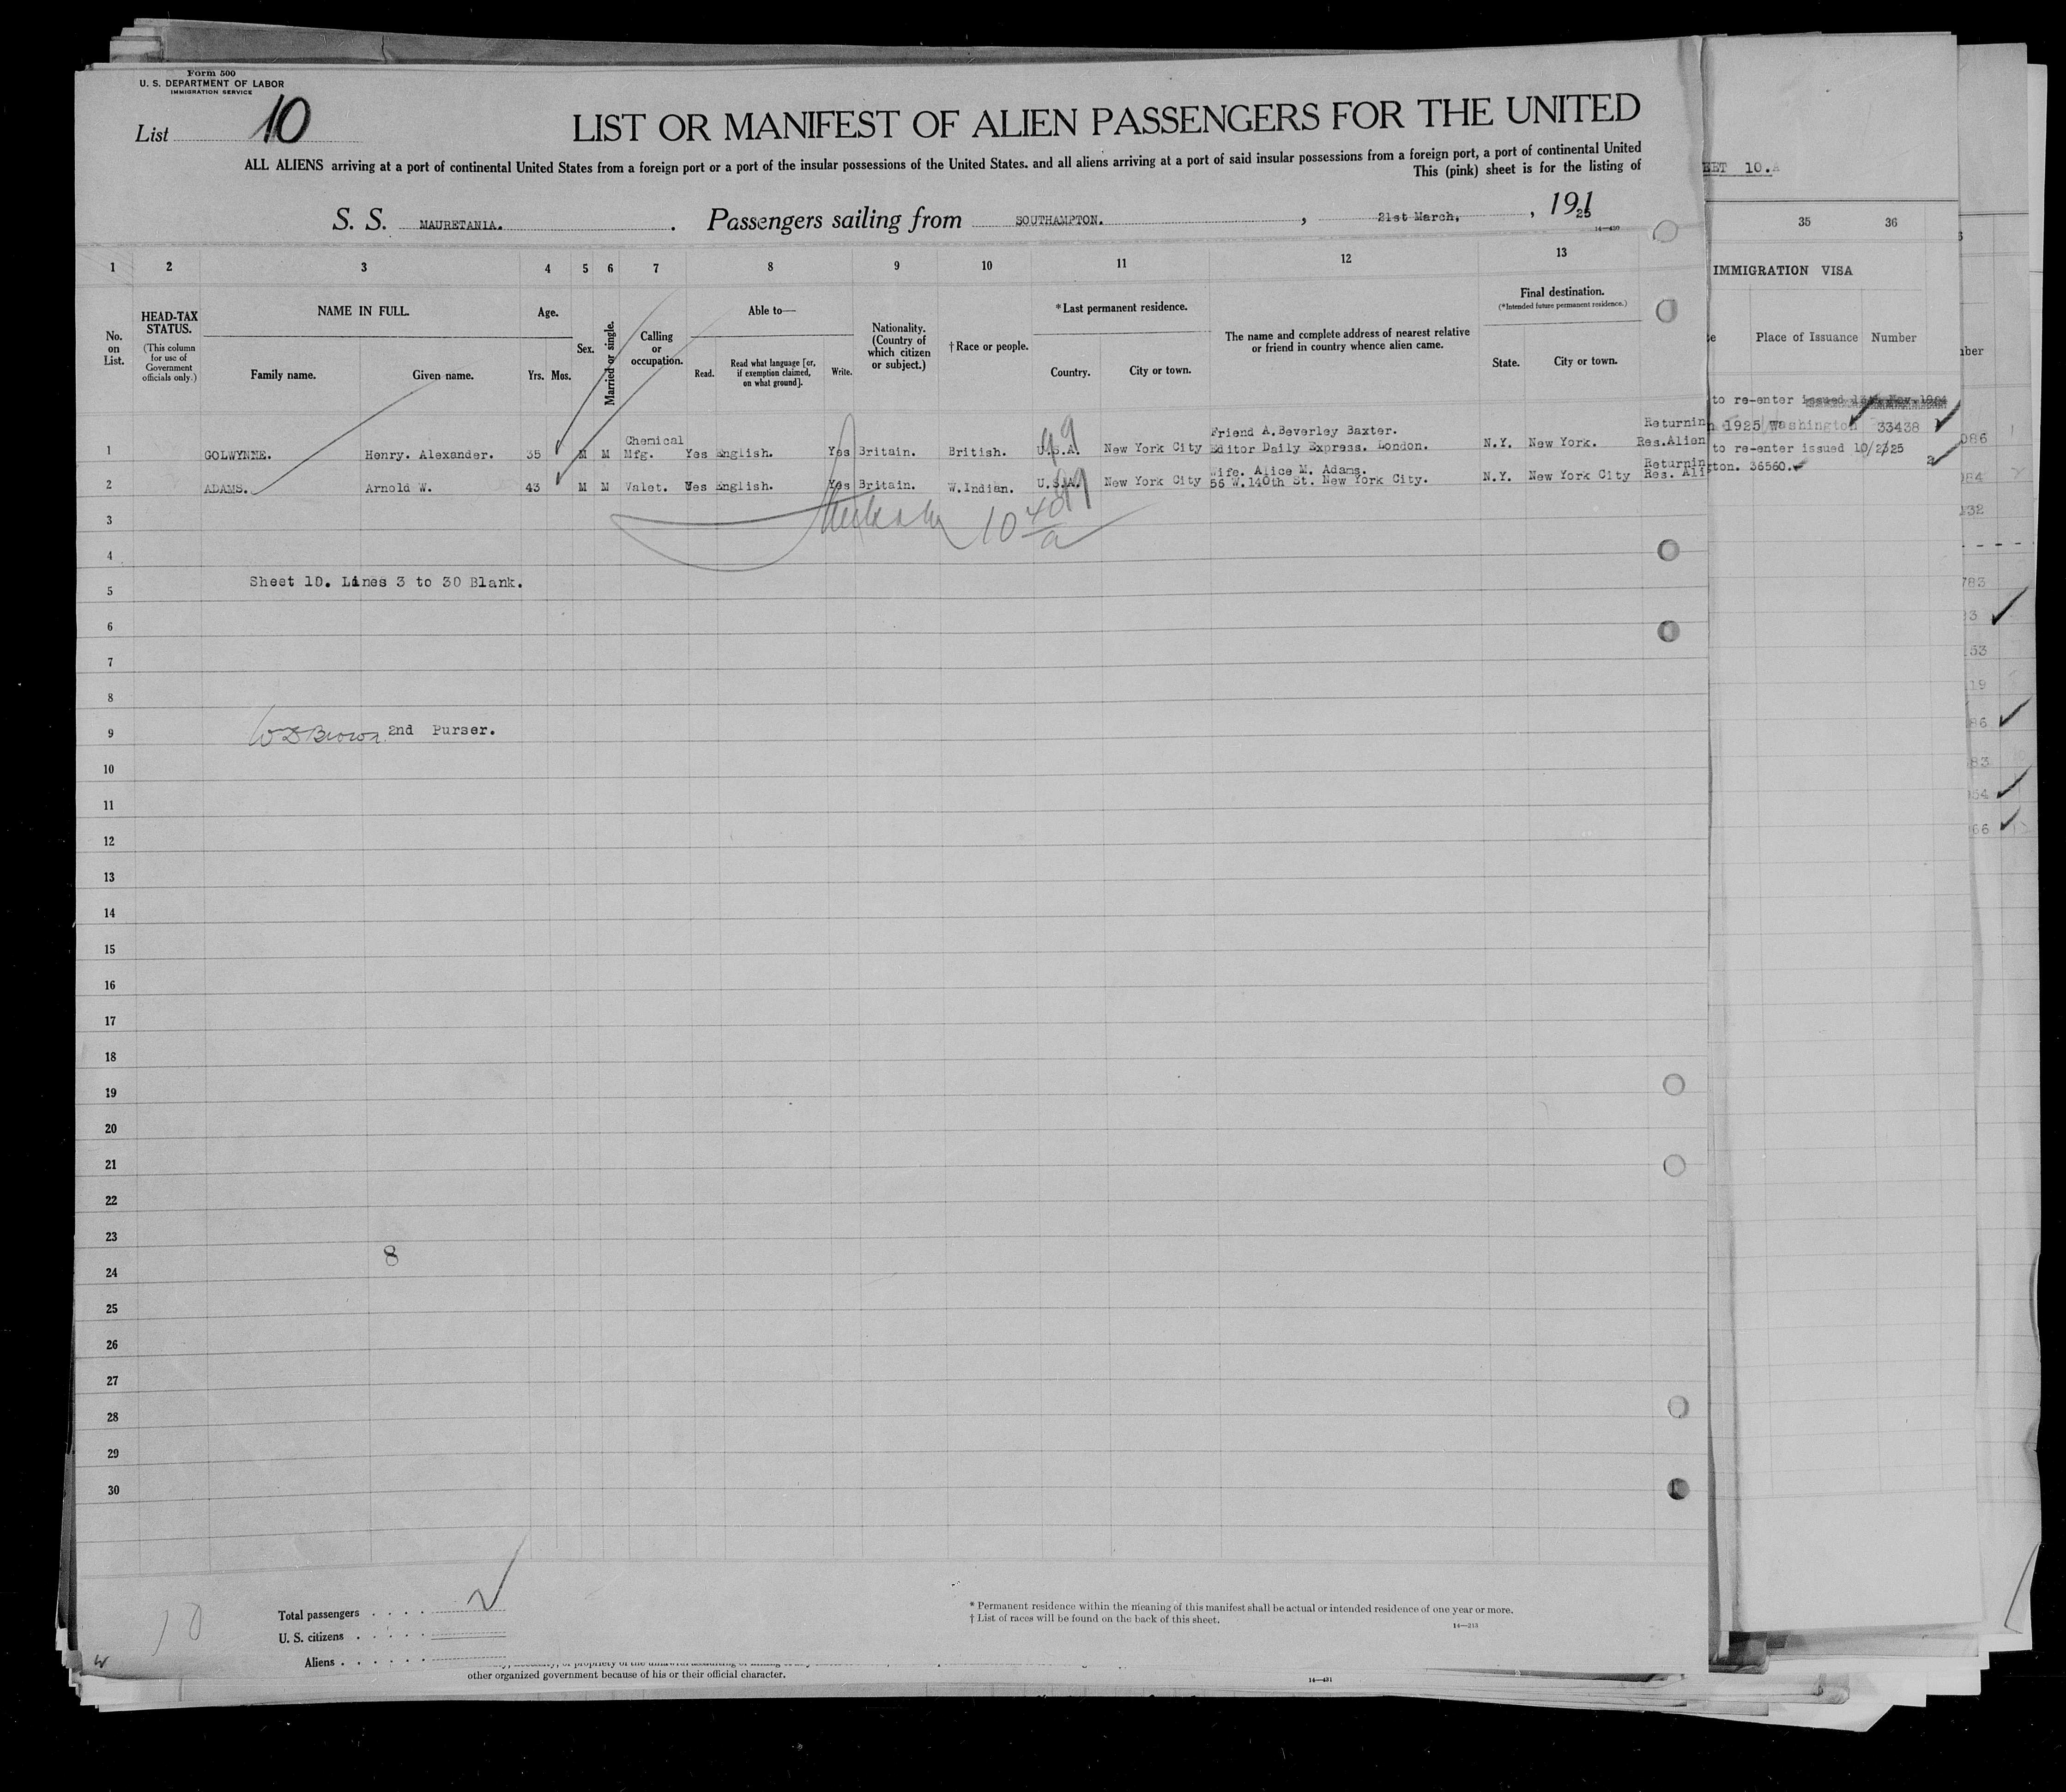 Form 500
U. S. DEPARTMENT OF LABOR
IMMIGRATION SERVICE
List 10
LIST OR MANIFEST OF ALIEN PASSENGERS FOR THE UNITED
ALL ALIENS arriving at a port of continental United States from a foreign port or a port of the insular possessions of the United States, and all aliens arriving at a port of said insular possessions from a foreign port, a port of continental United
This (pink) sheet is for the listing of
S. S. MAURETANIA. Passengers sailing from SOUTHAMPTON. , 21st March, , 191 25
14—430
1 2 3 4 5 6 7 8 9 10 11 12 13
No. on List.
HEAD-TAX STATUS.
(This column for use of Government officials only.)
NAME IN FULL.
Family name. Given name.
Age.
Yrs. Mos.
Sex.
Married or single.
Calling or occupation.
Able to—
Read. Read what language [or, if exemption claimed, on what ground]. Write.
Nationality. (Country of which citizen or subject.)
†Race or people.
*Last permanent residence.
Country. City or town.
The name and complete address of nearest relative or friend in country whence alien came.
Final destination.
(*Intended future permanent residence.)
State. City or town.
1 GOLWYNNE. Henry. Alexander. 35 M M Chemical Mfg. Yes English. Yes Britain. British. U.S.A. New York City Friend A.Beverley Baxter. Editor Daily Express. London. N.Y. New York. Returnin Res.Alien
2 ADAMS. Arnold W. 43 M M Valet. Yes English. Yes Britain. W.Indian. U.S.A. New York City Wife. Alice M. Adams. 56 W.140th St. New York City. N.Y. New York City Returnin Res. Ali
3
10 40/a
4
Sheet 10. Lines 3 to 30 Blank.
5
6
7
8
9 W D Brown 2nd Purser.
10
11
12
13
14
15
16
17
18
19
20
21
22
23
8
24
25
26
27
28
29
30
10
Total passengers . . . . 2
U. S. citizens . . . . .
Aliens . . . . . .
* Permanent residence within the meaning of this manifest shall be actual or intended residence of one year or more.
† List of races will be found on the back of this sheet.
14—213
other organized government because of his or their official character.
14—431
EET 10.A
35 36
IMMIGRATION VISA
Place of Issuance Number
to re-enter issued
1925 Washington 33438
to re-enter issued 10/2/25
ton. 36560.
ber
086
084
932
783
53
19
86
83
54
66